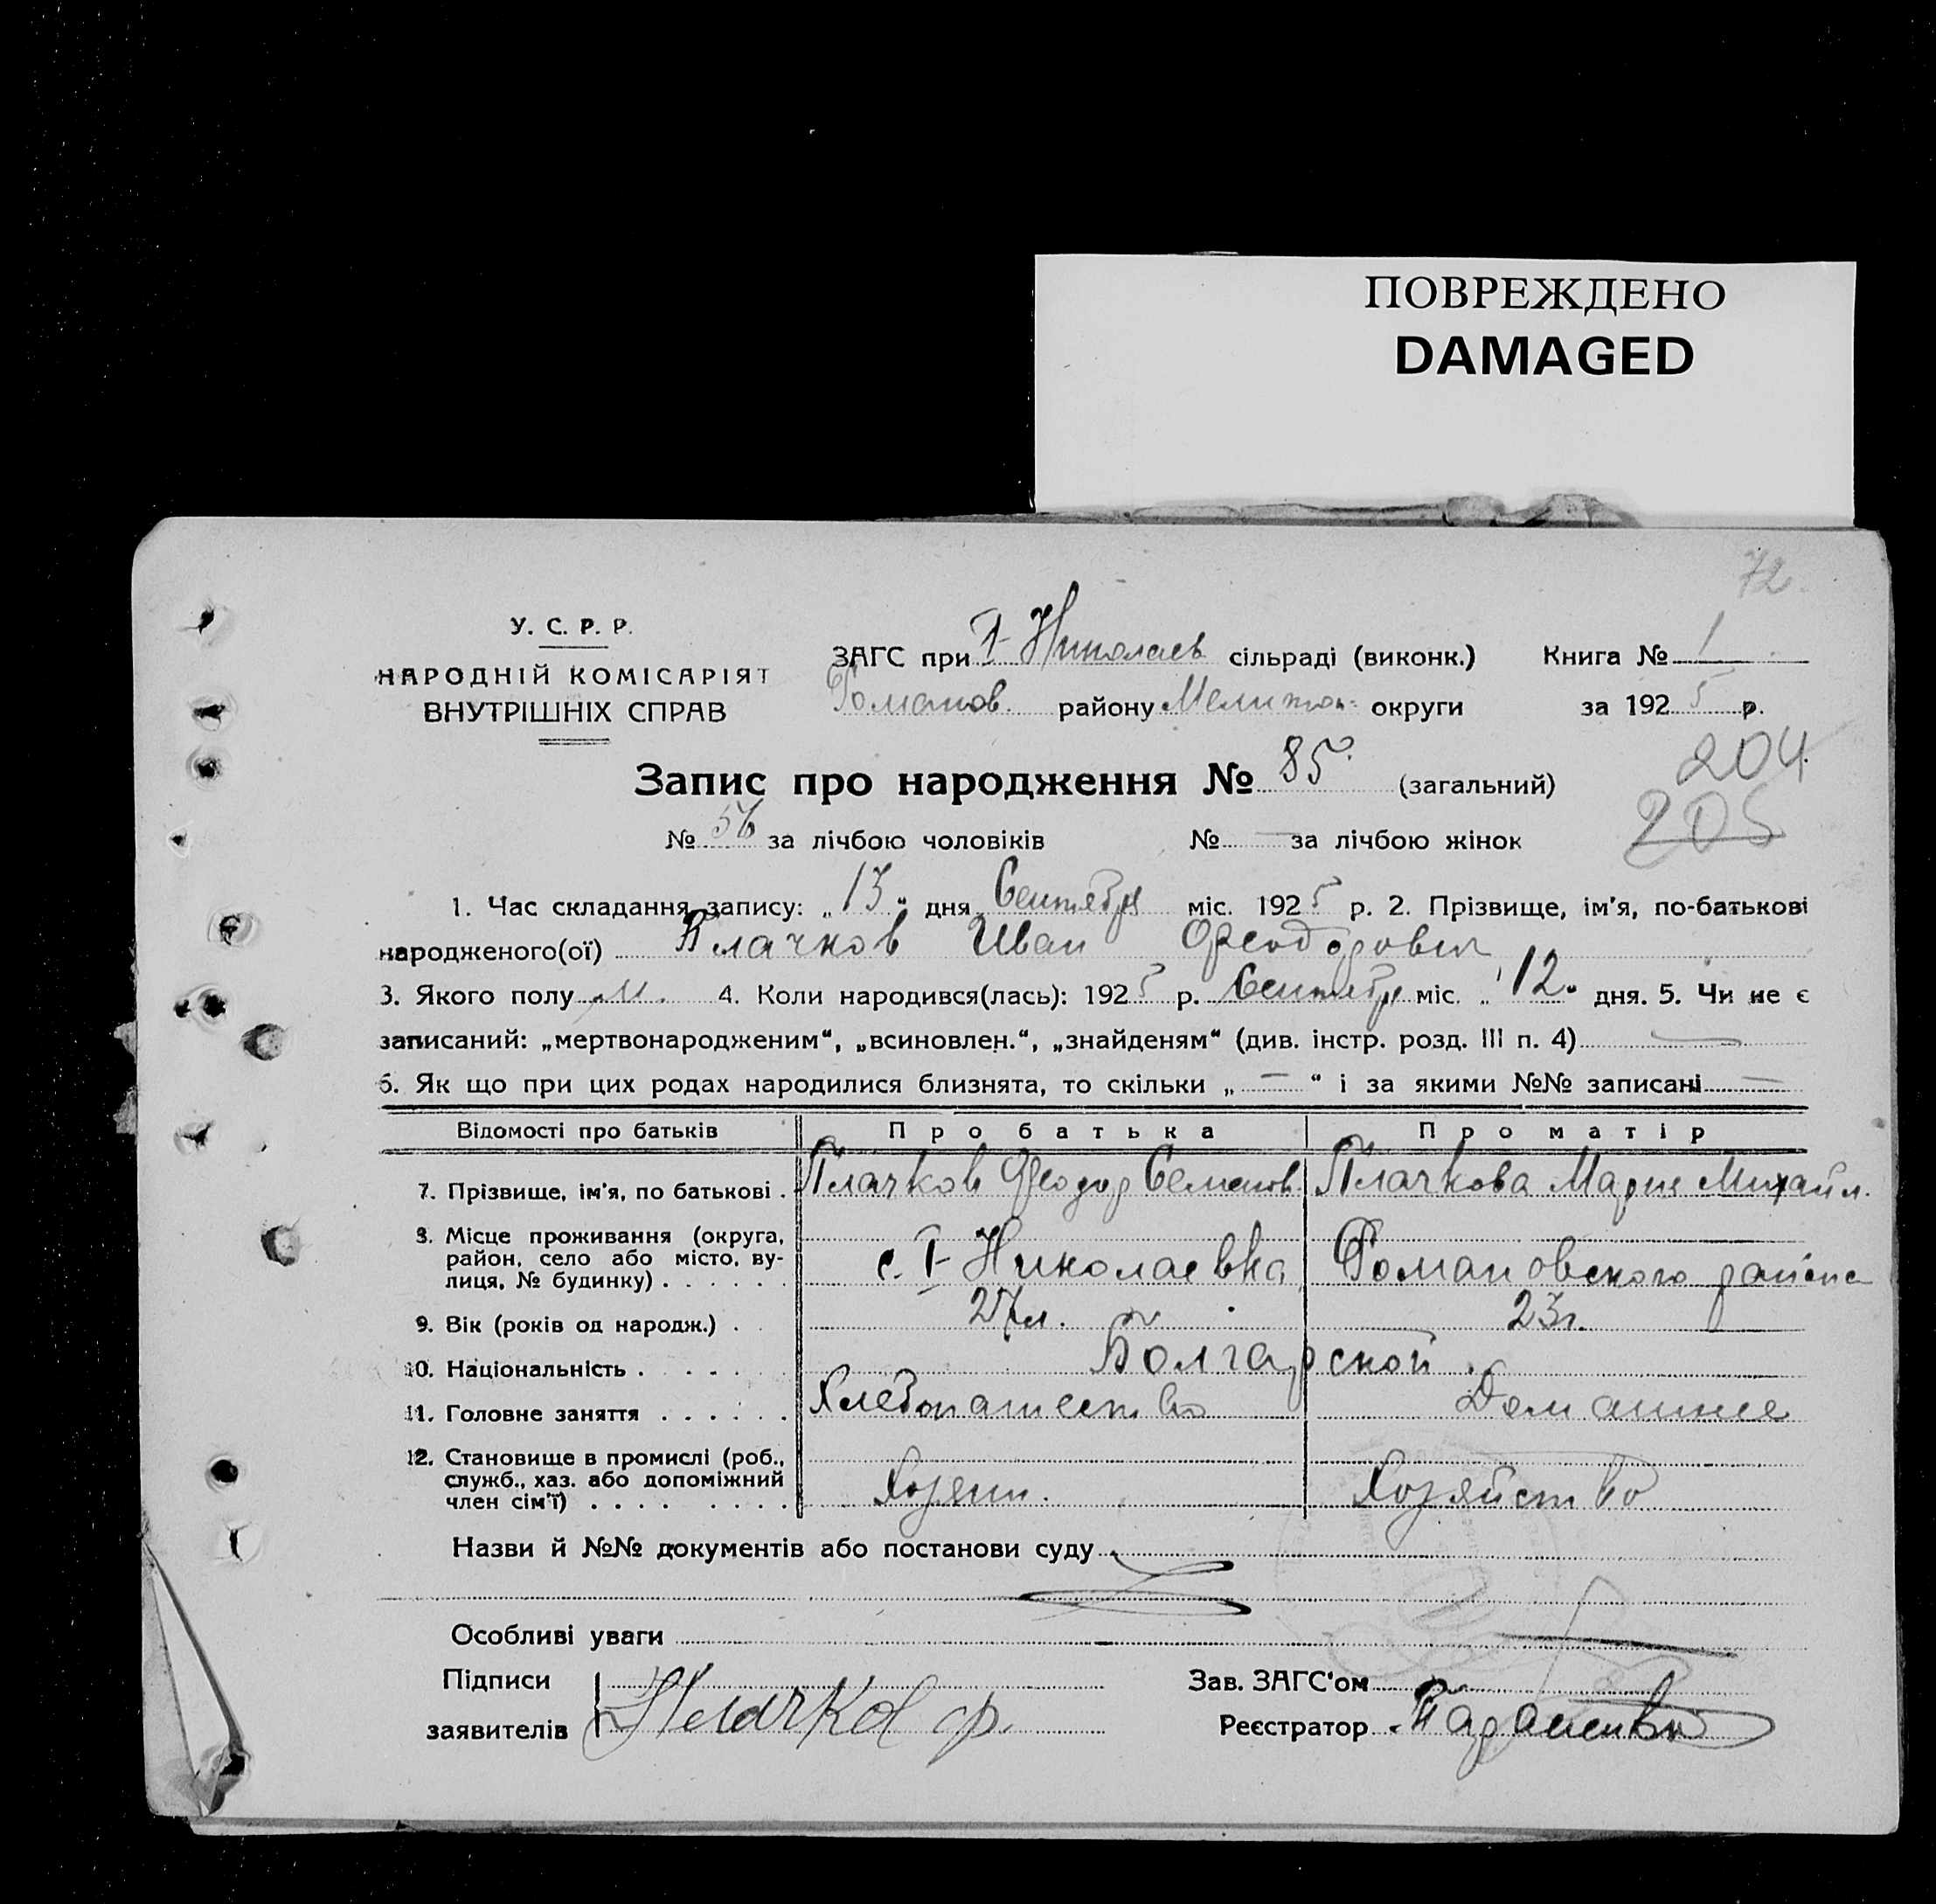 ПОВРЕЖДЕНО
DAMAGED
72.
У. С. Р. Р.
НАРОДНІЙ КОМІСАРІЯТ
ВНУТРІШНІХ СПРАВ
ЗАГС при I Николаев сільраді (виконк.) Книга № 1
Романов. району Мелитоп. округи за 1925 р.
204
Запис про народження № 85 (загальний)
205
№ 56 за лічбою чоловіків № — за лічбою жінок
1. Час складання запису: „13“ дня Сентября міс. 1925 р. 2. Прізвище, ім'я, по-батькові
народженого(ої) Плачков Иван Феодорович
3. Якого полу м. 4. Коли народився(лась): 1925 р. Сентября міс. „12“ дня. 5. Чи не є
записаний: „мертвонародженим“, „всиновлен.“, „знайденям“ (див. інстр. розд. III п. 4) —
6. Як що при цих родах народилися близнята, то скільки „—“ і за якими №№ записані —
Відомості про батьків Про батька Про матір
7. Прізвище, ім'я, по батькові . Плачков Феодор Семенов. Плачкова Мария Михайл.
8. Місце проживання (округа,
район, село або місто, ву-
лиця, № будинку) . . . . . . с. I Николаевка Романовского района
9. Вік (років од народж.) . . 27 л. 23 г.
10. Національність . . . . . Болгарской
11. Головне заняття . . . . . . Хлебопашество Домашнее
12. Становище в промислі (роб.,
служб., хаз. або допоміжний
член сім'ї) . . . . . . . . Хозяин. Хозяйство
Назви й №№ документів або постанови суду
Особливі уваги
Підписи Зав. ЗАГС'ом
заявителів Плачков ф. Реєстратор